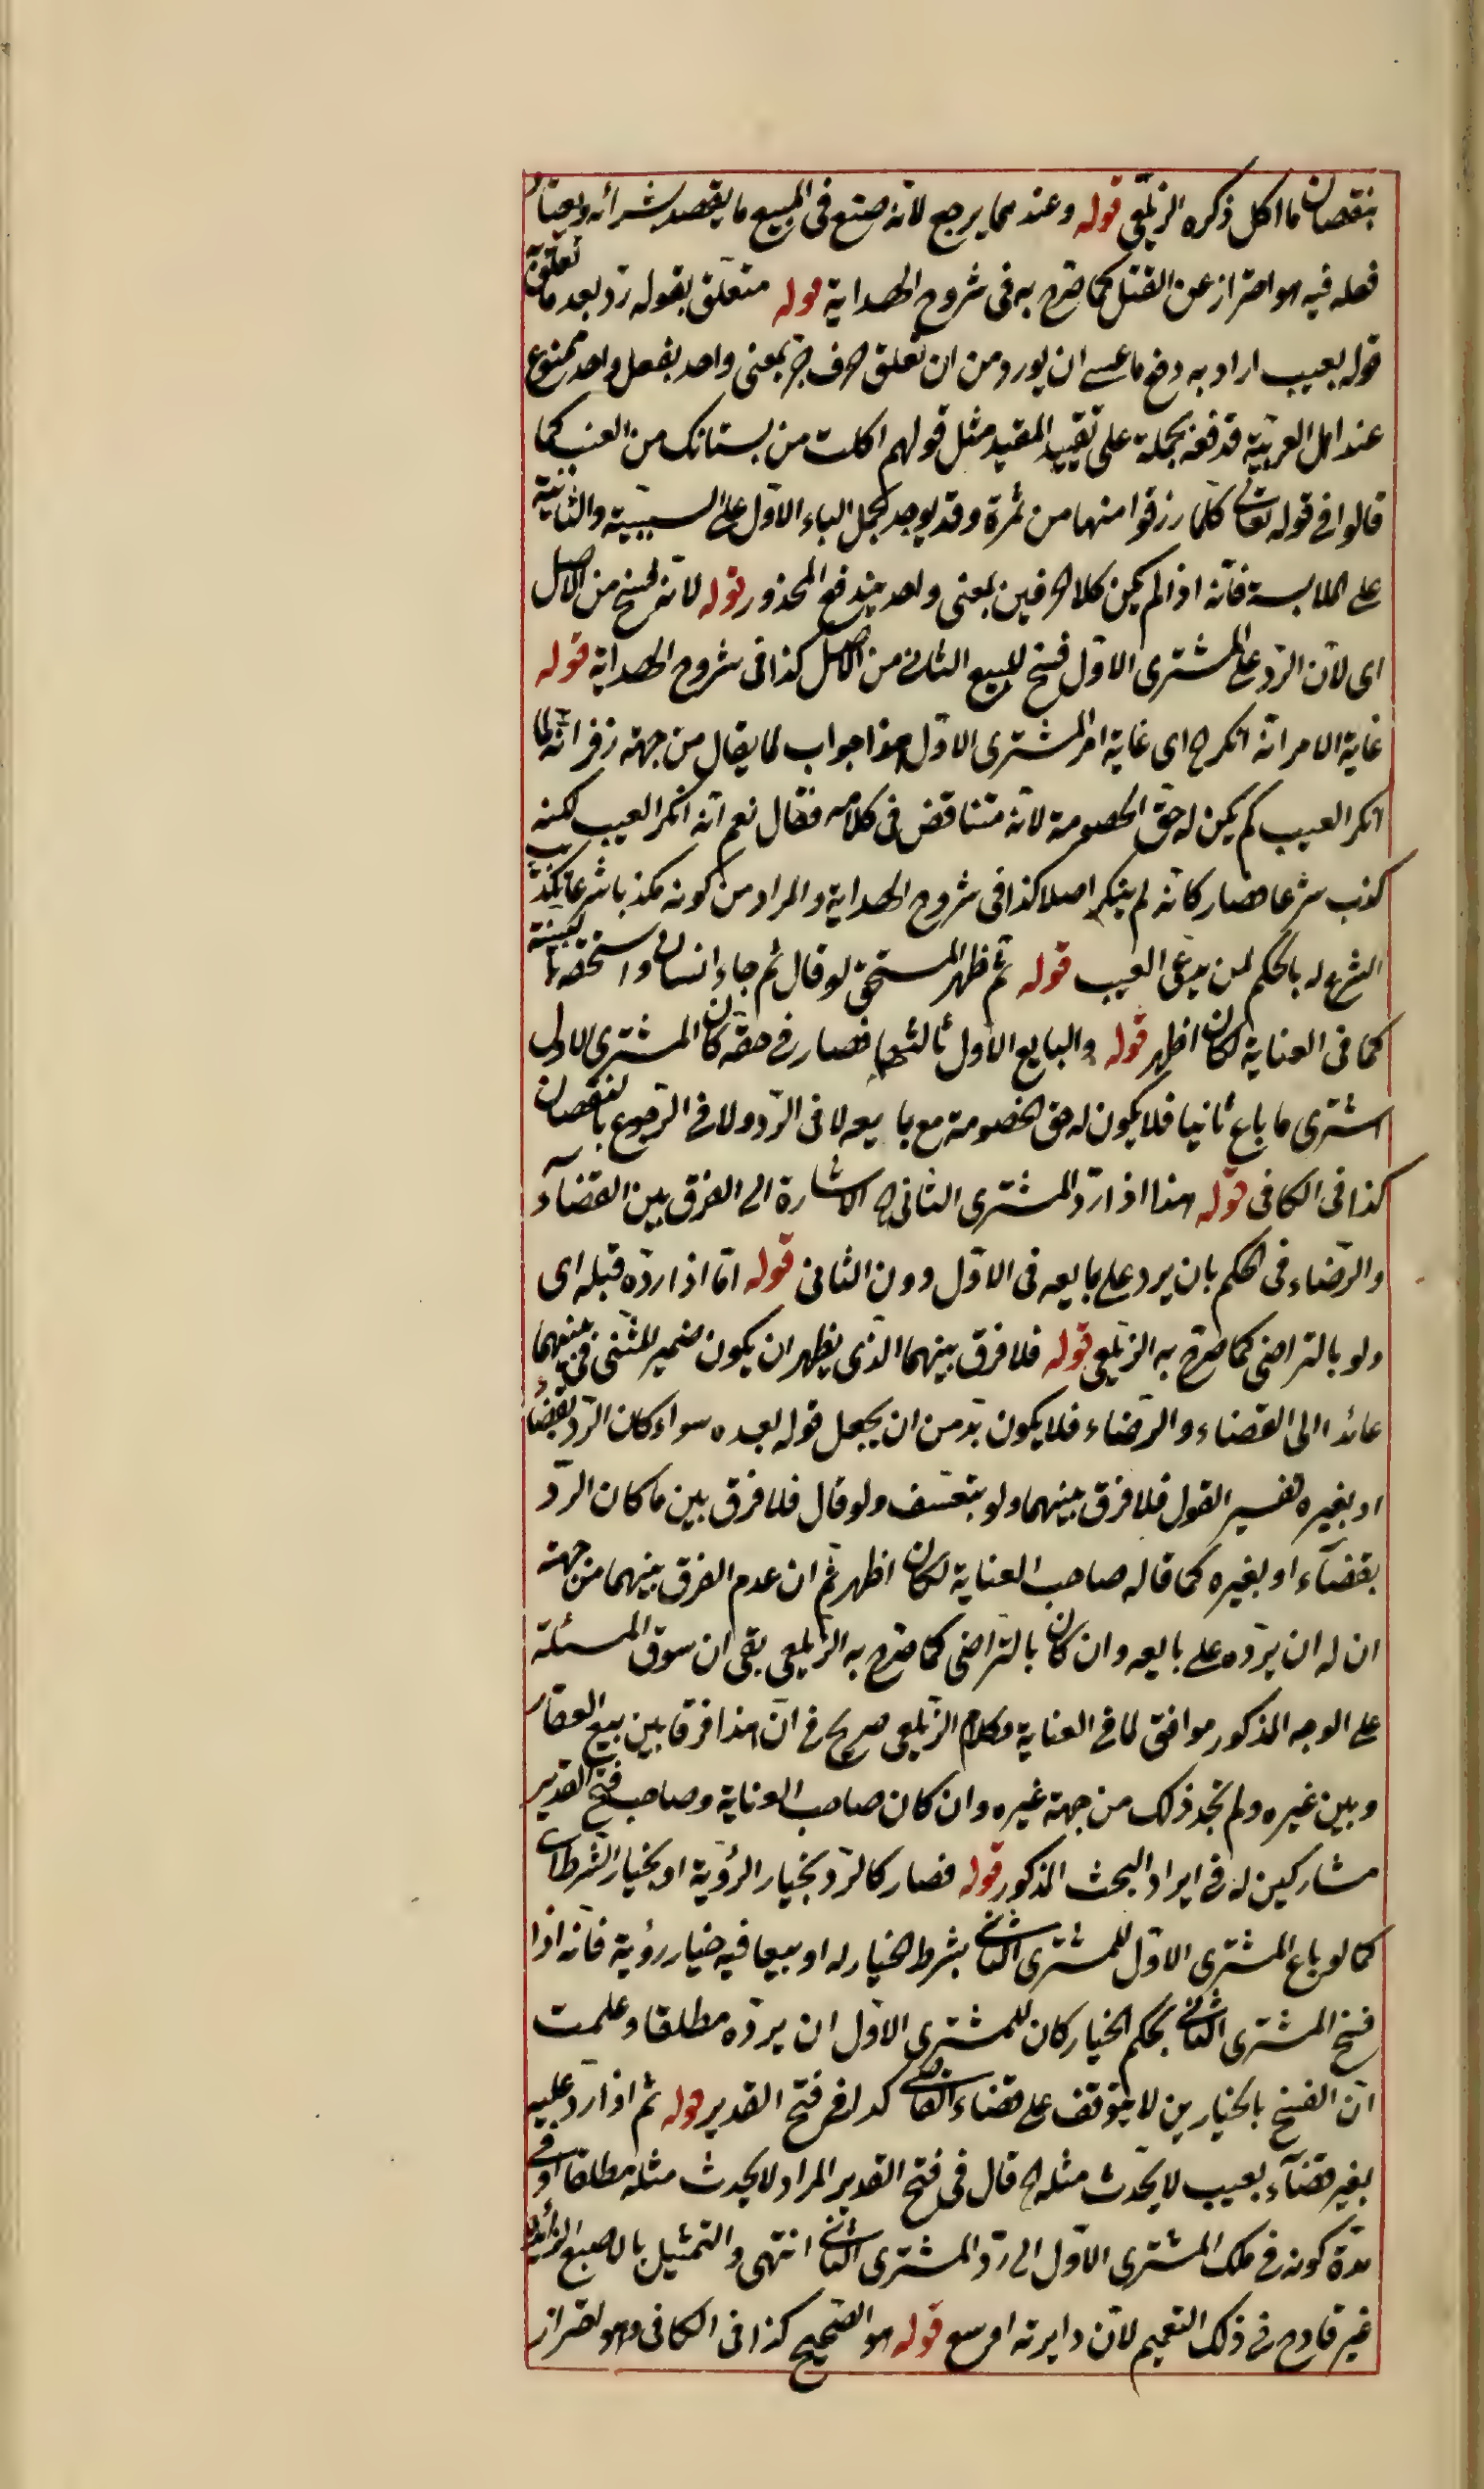 بنقصان ما اكل ذكره الزيلعي قوله وعندهما يرجع لانه صنع في المبيع ما يقصد بشرائه ويعتاد
فعله فيه هو احتراز عن القتل كما صرح به في شروح الهداية قوله متعلق بقوله رد بعد ما تعلق
قوله بعيب اراد به دفع ما عسى ان يورد من ان تعلق حرف جر بمعنى واحد بفعل واحد ممنوع
عند اهل العربية فدفعه بحمله على تقييد المقيد مثل قولهم اكلت من بستانك من العنب كما
قالوا في قوله تعالى كلما رزقوا منها من ثمرة وقد يوجد بحمل الباء الاول على السببية والثانية
على الملابسة فانه اذا لم يكن كلا الحرفين بمعنى واحد يندفع المحذور قوله لانه فسخ من الاصل
اى لان الرد على المشترى الاول فسخ للبيع الثانى من الاصل كذا فى شروح الهداية قوله
غاية الامر انه انكر الخ اى غاية امر المشترى الاول هذا جواب لما يقال من جهة زفر انه لما
انكر العيب لم يكن له حق الخصومة لانه متناقض فى كلامه فقال نعم انه انكر العيب لكنه
كذب شرعا فصار كانه لم ينكر اصلا كذا فى شروح الهداية والمراد من كونه مكذبا شرعا تكذيب
الشرع له بالحكم لمن يدعى العيب قوله ثم ظهر المستحق لو قال ثم جاء انسان واستحقه ببينة
كما فى العناية لكان اظهر قوله والبايع الاول ثالثها فصار فى حقه كان المشترى الاول
اشترى ما باع ثانيا فلا يكون له حق الخصومة مع بايعه لا فى الرد ولا فى الرجوع بالنقصان
كذا فى الكافى قوله هذا اذا رد المشترى الثانى الخ الاشارة الى الفرق بين القضاء
والرضاء فى الحكم بان يرد على بايعه فى الاول دون الثانى قوله اما اذا رده قبله اى
ولو بالتراضى كما صرح به الزيلعى قوله فلا فرق بينهما الذى يظهر ان يكون ضمير المثنى فى بينهما
عائدا الى القضاء والرضاء فلا يكون بد من ان يجعل قوله بعده سواء كان الرد بقضاء
او بغيره تفسير القول فلا فرق بينهما ولو بتعسف ولو قال فلا فرق بين ما كان الرد
بقضاء او بغيره كما قاله صاحب العناية لكان اظهر ثم ان عدم الفرق بينهما من جهة
ان له ان يرده على بايعه وان كان بالتراضى كما صرح به الزيلعى بقى ان سوق المسئلة
على الوجه المذكور موافق لما فى العناية وكلام الزيلعى صريح فى ان هذا فرقا بين بيع العقار
وبين غيره ولم نجد ذلك من جهة غيره وان كان صاحب العناية وصاحب فتح القدير
مشاركين له فى ايراد البحث المذكور قوله فصار كالرد بخيار الرؤية او بخيار الشرط اى
كما لو باع المشترى الاول للمشترى الثانى بشرط الخيار له او بيعا فيه خيار رؤية فانه اذا
فسخ المشترى الثانى بحكم الخيار كان للمشترى الاول ان يرده مطلقا وعلمت
ان الفسخ بالخيارين لا يتوقف على قضاء القاضى كذا فى فتح القدير قوله ثم اذا رد عليه
بغير قضاء بعيب لا يحدث مثله الخ قال فى فتح القدير المراد لا يحدث مثله مطلقا او فى
مدة كونه فى ملك المشترى الاول الى رد المشترى الثانى انتهى والتمثيل بالاصبع الزائدة
غير قادح فى ذلك التعميم لان دايرته اوسع قوله هو الصحيح كذا فى الكافى وهو احتراز